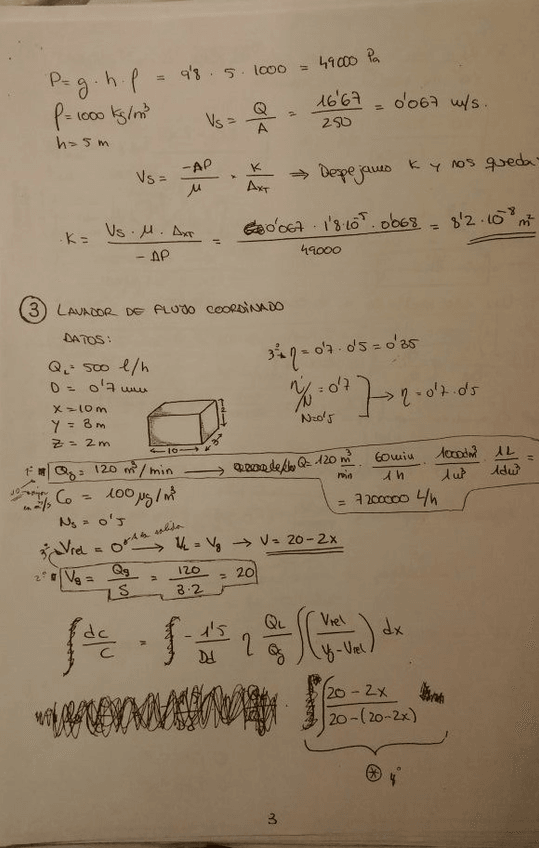 P = g · h · ρ = 9'8 · 5 · 1000 = 49000 Pa
ρ = 1000 kg/m³
h = 5 m
Vs = Q/A = 16'67/250 = 0'067 m/s.
Vs = -ΔP/μ · K/Δxt ⇒ Despejamos K y nos queda:
·K = Vs · μ · Δxt / -ΔP = 0'067 · 1'8·10⁻⁵ · 0'068 / 49000 = 8'2 · 10⁻⁸ m²
③ LAVADOR DE FLUJO COORDINADO
DATOS:
QL = 500 l/h
D = 0'7 mm
X = 10 m
Y = 3 m
Z = 2 m
3º η = 0'7 · 0'5 = 0'35
η/N = 0'7
N = 0'5 → η = 0'7 · 0'5
2
10
3
1º Qg = 120 m³/min → Q = 120 m³/min · 60 min/1h · 1000 dm³/1m³ · 1L/1dm³ =
= 7200000 L/h
C0 = 100 μg/m³
Ns = 0'5
3º Vrel = 0 a la salida → VL = Vg → V = 20 - 2x
2º Vg = Qg/S = 120/3·2 = 20
∫ dc/c = ∫ - 1'5/Dd η QL/Qg ∫ (Vrel/Vg - Vrel) dx
∫ (20 - 2x / 20 - (20 - 2x))
⊛ 4º
3